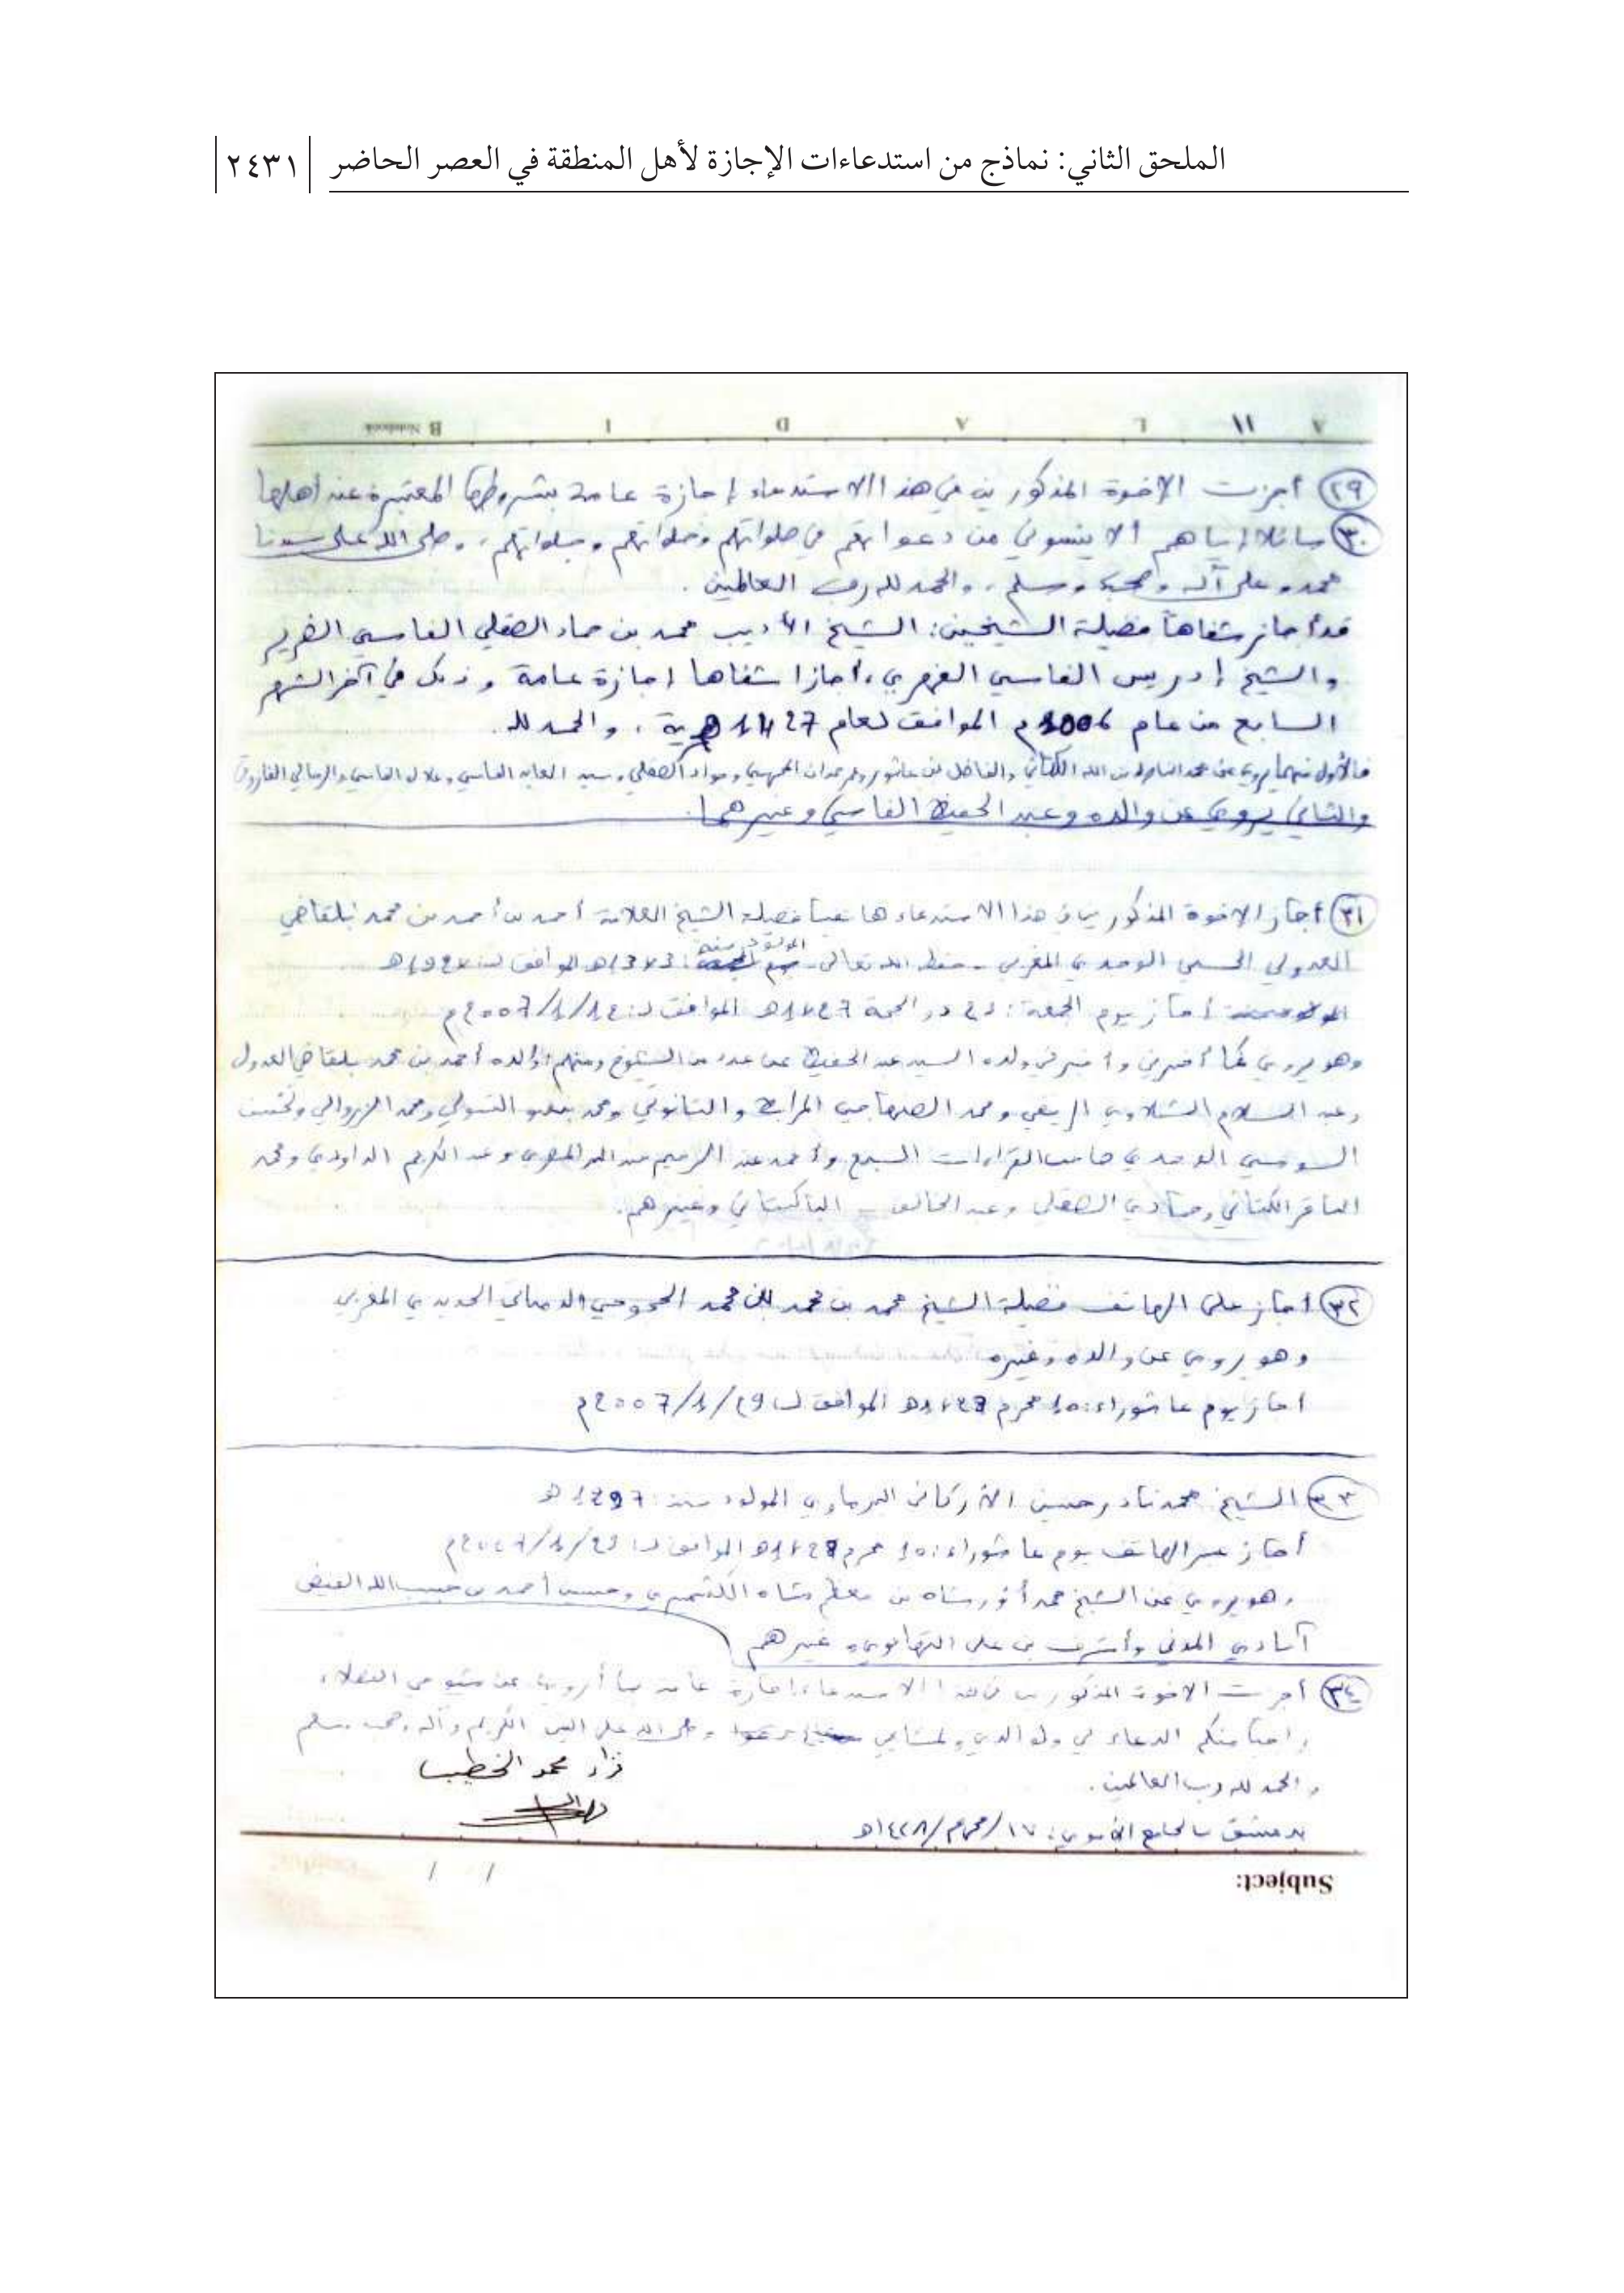 الملحق الثاني: نماذج من استدعاءات الإجازة لأهل المنطقة في العصر الحاضر
٢٤٣١
B Notebook I D A L ١١ A
٢٩ أجزت الإخوة المذكورين في هذا الاستدعاء إجازة عامة بشروطها المعتبرة عند أهلها
٣٠ سائلا إياهم ألا ينسوني من دعواتهم في صلواتهم وخلواتهم وجلواتهم، وصلى الله على سيدنا
محمد وعلى آله وصحبه وسلم، والحمد لله رب العالمين.
قد أجاز شفاهاً فضيلة الشيخين: الشيخ الأديب محمد بن حماد الصقلي الفاسي الضرير
والشيخ إدريس الفاسي الفهري، أجازا شفاها إجازة عامة وذلك في آخر الشهر
السابع من عام 2006م الموافق لعام 1427 هـية، والحمد لله.
فالأول منهما يروي عن محمد الكتاني والفاضل بن عاشور وجواد الصقلي و العابد الفاسي وعلال الفاسي والرحالي الفاروق
والثاني يروي عن والده وعبد الحفيظ الفاسي وغيرهما.
٣١ أجاز الإخوة المذكورين في هذا الاستدعاء هاتفيا فضيلة الشيخ العلامة أحمد بن أحمد بن محمد بلقاضي
العدولي الحسني الوجدي المغربي - حفظه الله تعالى - المولود سنة: 1373هـ الموافق
أجاز يوم الجمعة: ذو الحجة 1427هـ الموافق لـ: 12/1/2007م
وهو يروي كما أخبرني وأخبرني ولده السيد عبد الحفيظ عن عدد من الشيوخ ومنهم: والده أحمد بن محمد بلقاضي العدولي
وعبد السلام الريفي ومحمد الصنهاجي المرابط ومحمد التسولي ومحمد الزروالي
السوسي الوجدي صاحب القراءات السبع وأحمد عبد الرحيم وعبد الكريم الداودي ومحمد
الباقر الكتاني و الصقلي وعبد الخالق - الباكستاني وغيرهم.
٣٢ أجاز على الهاتف فضيلة الشيخ محمد بن محمد بن محمد الحجوجي الدمناتي الجديدي المغربي
وهو يروي عن والده وغيره
أجاز يوم عاشوراء: 10 محرم 1428هـ الموافق لـ 29/1/2007م
٣٣ الشيخ محمد نادر حسين الأركاني البرماوي المولود سنة: 1297هـ
أجاز عبر الهاتف يوم عاشوراء: 10 محرم 1428هـ الموافق لـ: 29/1/2007م
وهو يروي عن الشيخ محمد أنور شاه بن معظم شاه الكشميري وحسين أحمد بن حبيب الله الفيض
آبادي المدني وأشرف بن علي التهانوي وغيرهم
٣٤ أجزت الإخوة المذكورين في هذا الاستدعاء إجازة عامة بما أرويه عن شيوخي الفضلاء
راجيا منكم الدعاء لي ولوالدي ولمشايخي وصلى الله على النبي الكريم وآله وصحبه وسلم
والحمد لله رب العالمين.
نزار محمد الخطيب
بدمشق بالجامع الأموي: ١٧/محرم/١٤٢٨هـ
Subject:
/ /